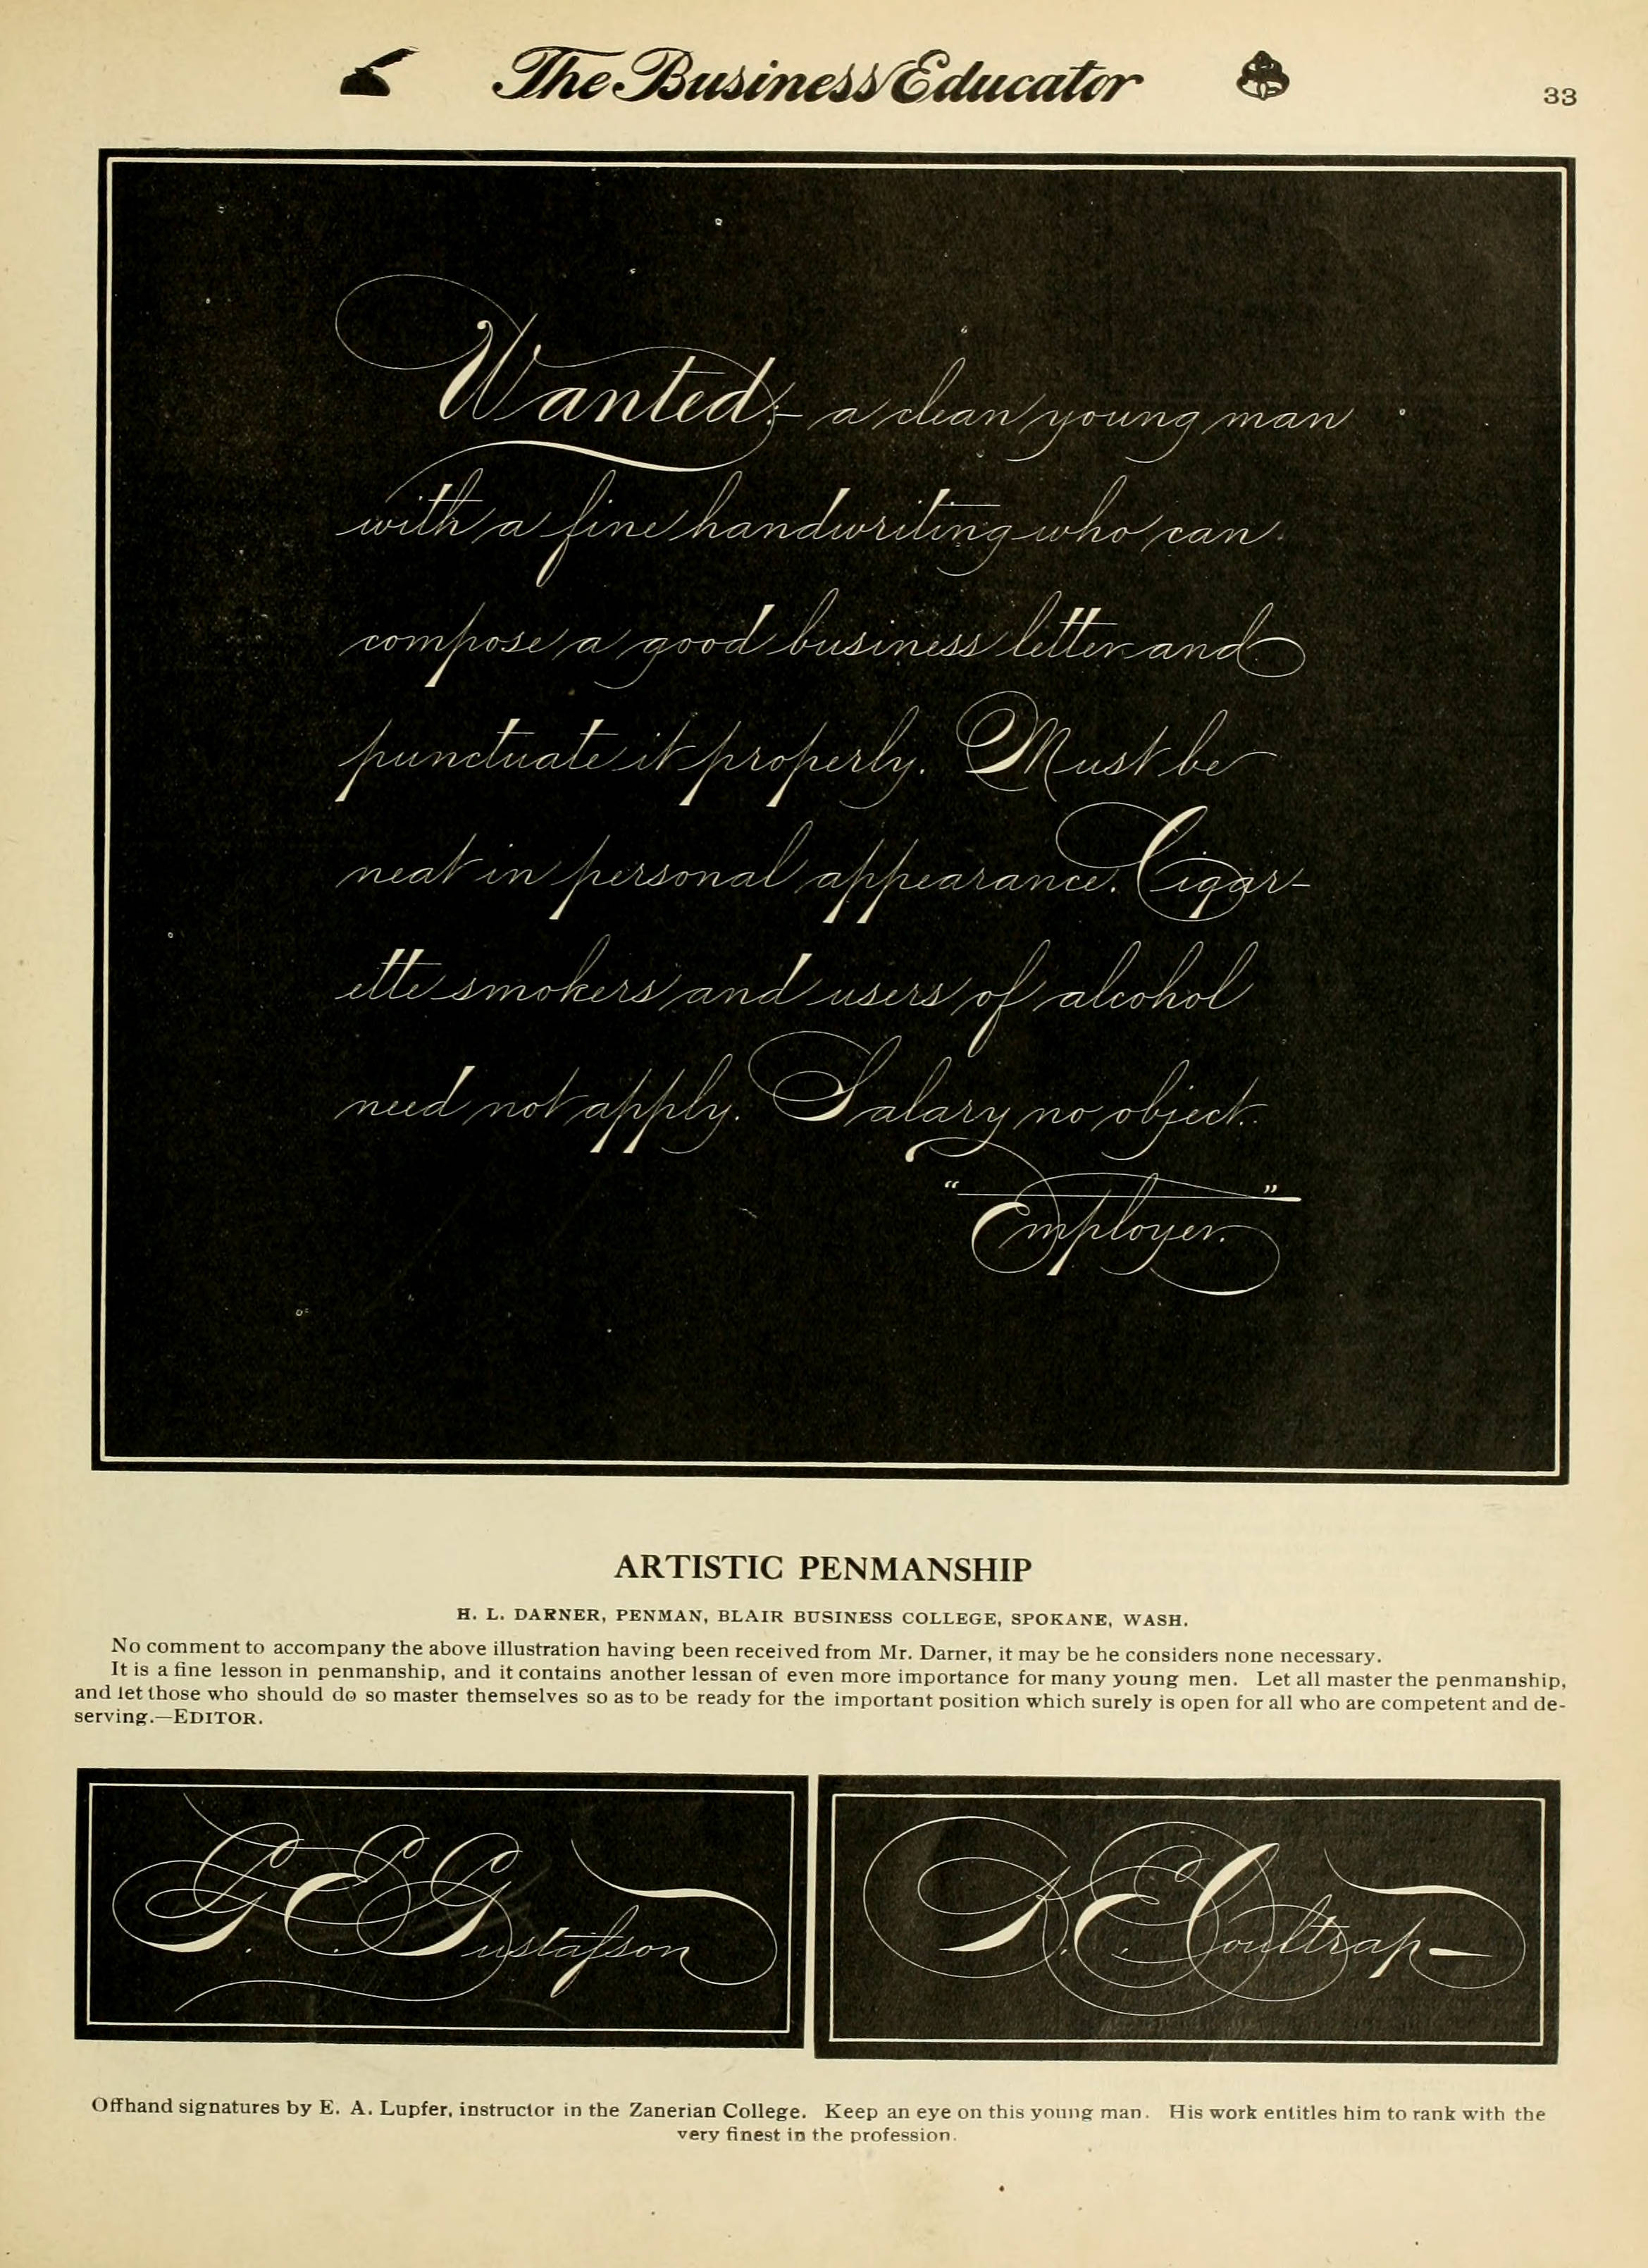 The Business Educator
33
Wanted:- a clean young man
with a fine handwriting who can
compose a good business letter and
punctuate it properly. Must be
neat in personal appearance. Cigar-
ette smokers and users of alcohol
need not apply. Salary no object.
"Employer."
ARTISTIC PENMANSHIP
H. L. DARNER, PENMAN, BLAIR BUSINESS COLLEGE, SPOKANE, WASH.
No comment to accompany the above illustration having been received from Mr. Darner, it may be he considers none necessary.
It is a fine lesson in penmanship, and it contains another lessan of even more importance for many young men. Let all master the penmanship,
and let those who should do so master themselves so as to be ready for the important position which surely is open for all who are competent and de-
serving.—EDITOR.
G. E. Gustafson
R. E. Coultrap
Offhand signatures by E. A. Lupfer, instructor in the Zanerian College. Keep an eye on this young man. His work entitles him to rank with the
very finest in the profession.